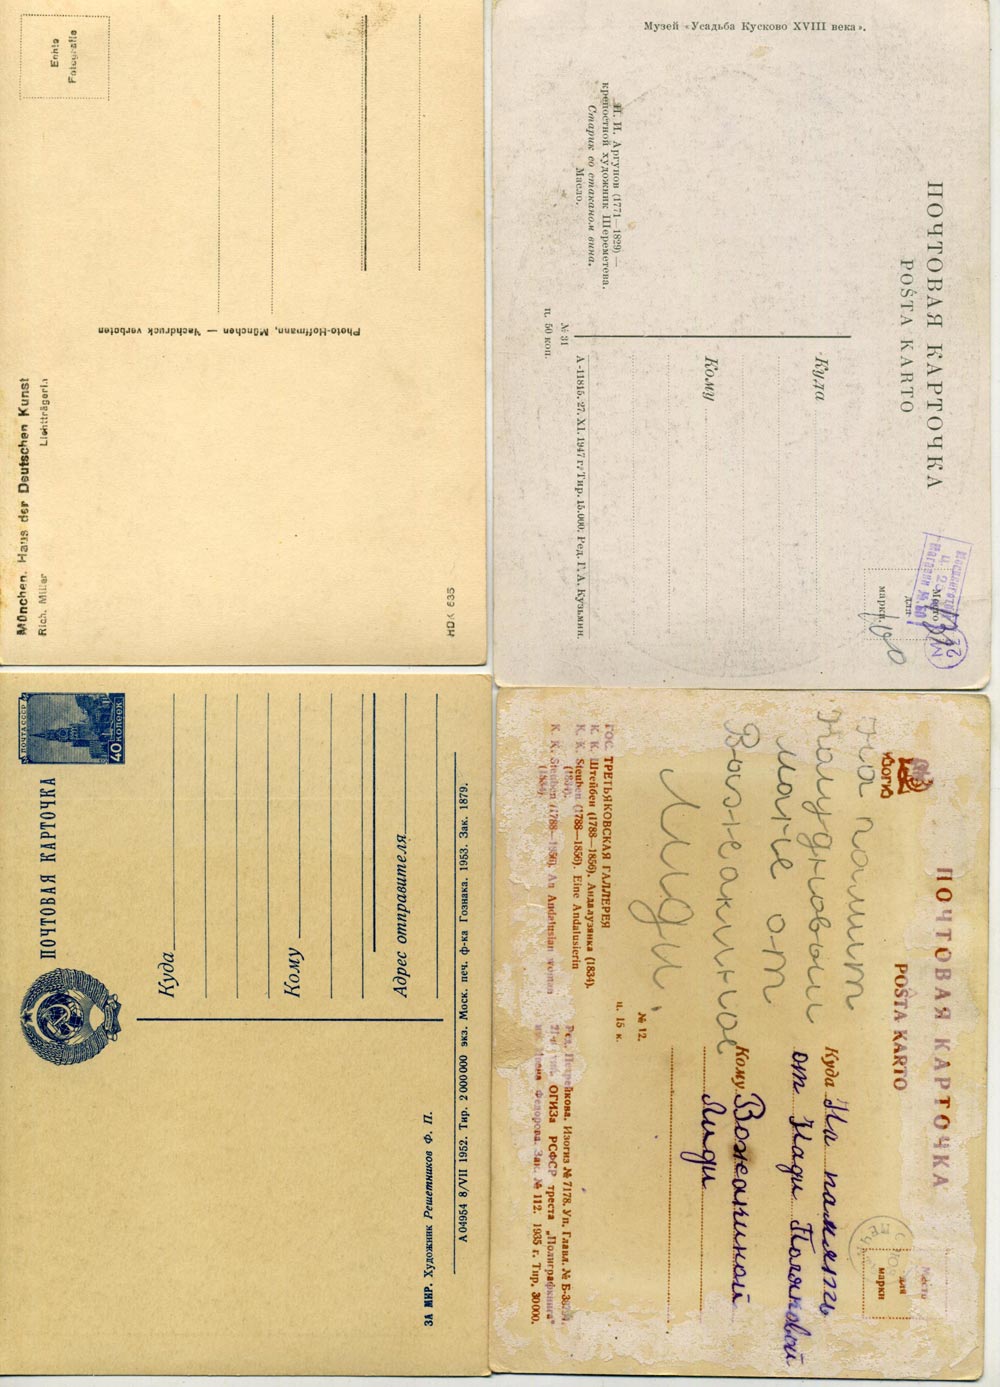 Echte
Fotografie
Photo-Hoffmann, München — Nachdruck verboten
München. Haus der Deutschen Kunst
Rich. Miller
Lichtträgerin
HDK 635
Музей «Усадьба Кусково XVIII века».
Н. И. Аргунов (1771—1829) —
крепостной художник Шереметева.
Старик со стаканом вина.
Масло.
ПОЧТОВАЯ КАРТОЧКА
POŜTA KARTO
Куда
Кому
№ 31
ц. 50 коп.
А-11815. 27. XI. 1947 г. Тир. 15.000. Ред. Г. А. Кузьмин.
Место
для
марки
ПОЧТА СССР
40 КОПЕЕК
ПОЧТОВАЯ КАРТОЧКА
Куда
Кому
Адрес отправителя
ЗА МИР. Художник Решетников Ф. П.
А04954 8/VII 1952. Тир. 2 000 000 экз. Моск. печ. ф-ка Гознака. 1953. Зак. 1879.
ИЗОГИЗ
ПОЧТОВАЯ КАРТОЧКА
POŜTA KARTO
На памит
Калудновый
маче от
Вожакиное
Лиди
ГОС. ТРЕТЬЯКОВСКАЯ ГАЛЛЕРЕЯ
К. К. Штейбен (1788—1856). Андалузянка (1834).
K. K. Steuben (1788—1856). Eine Andalusierin
(1834).
K. K. Steuben (1788—1856). An Andalusian woman
(1834).
№ 12.
ц. 15 к.
Куда На память
от Нади Поляковой
Кому Вожакиной
Лиди
Место
для
марки
Ред. Петрейкова. Изогиз № 7178. Уп. Главл. № Б-
ОГИЗа РСФСР треста „Полиграфкнига"
Ивана Федорова. Зак. № 112. 1935 г. Тир. 30000.